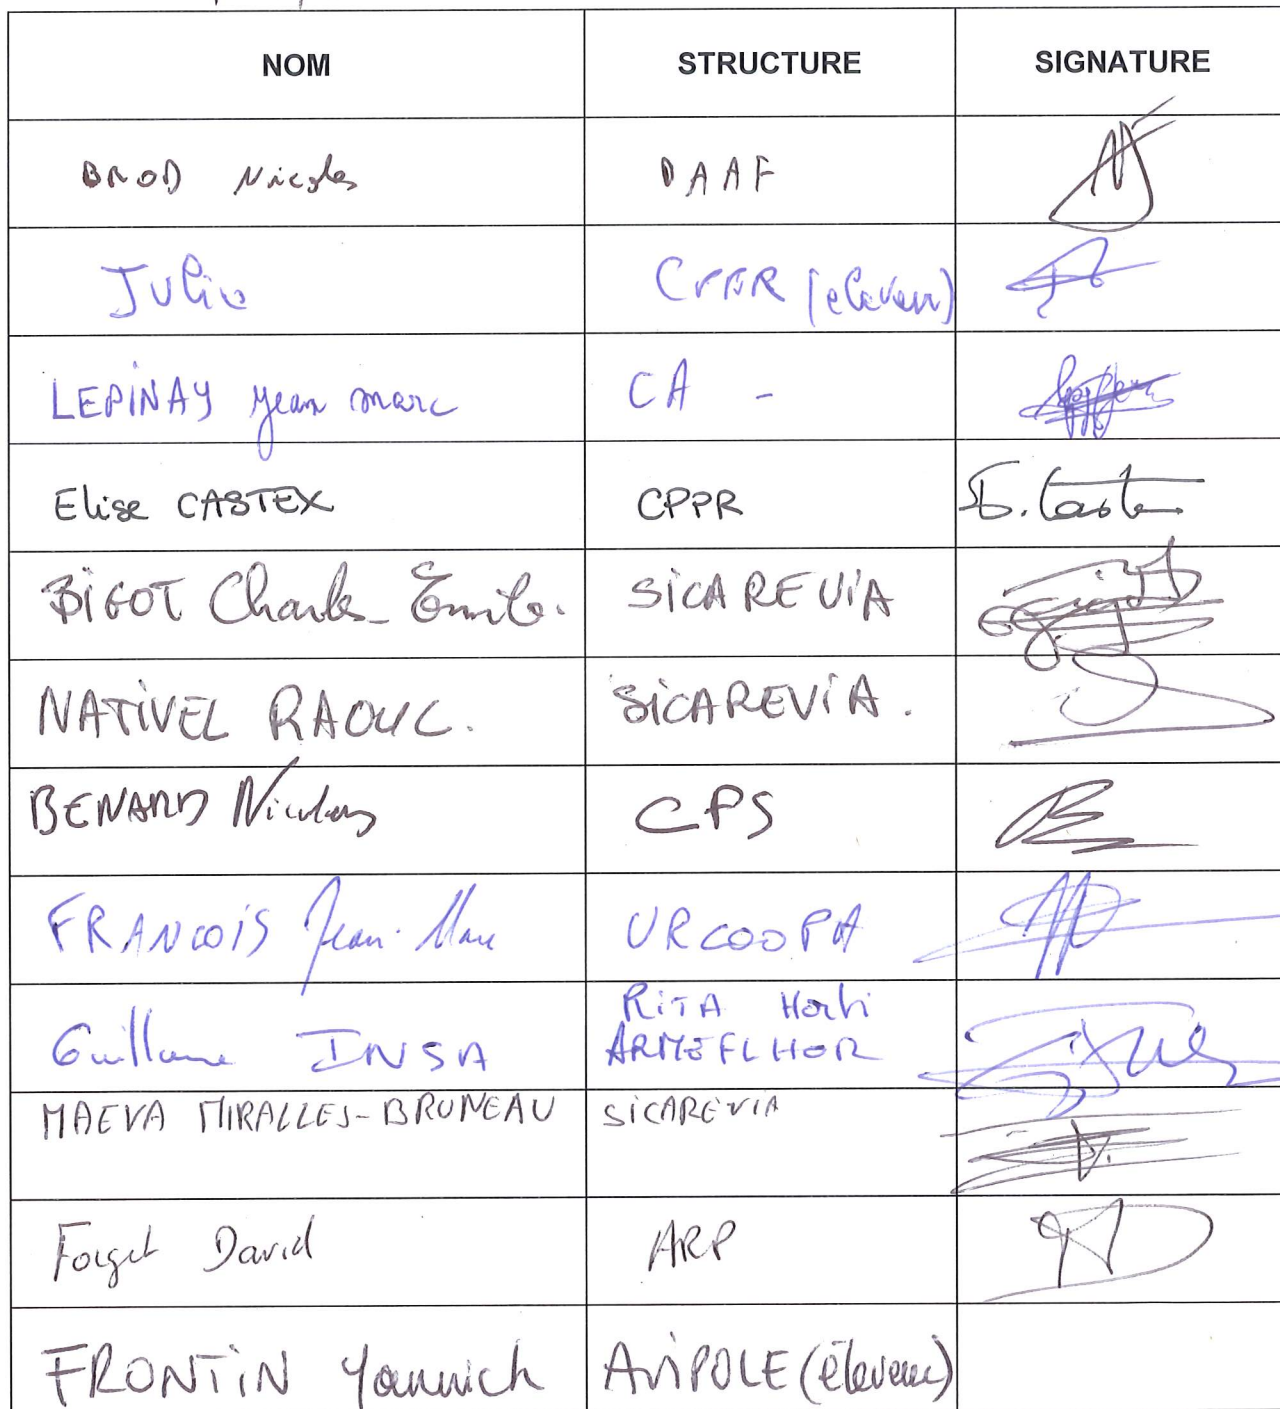 NOM STRUCTURE SIGNATURE
BROD Nicolas DAAF
Julie CPPR (éleveur)
LEPINAY Jean marc CA -
Elise CASTEX CPPR E. Castex
BIGOT Charles-Emile. SICAREVIA
NATIVEL RAOUL. SICAREVIA.
BENARD Nicolas CPS
FRANCOIS Jean-Marc URCOOPA
Guillaume INSA RITA Horti
ARMEFLHOR
MAEVA MIRALLES-BRUNEAU SICAREVIA
Forget David ARP
FRONTIN Yannich AVIPOLE (éleveur)